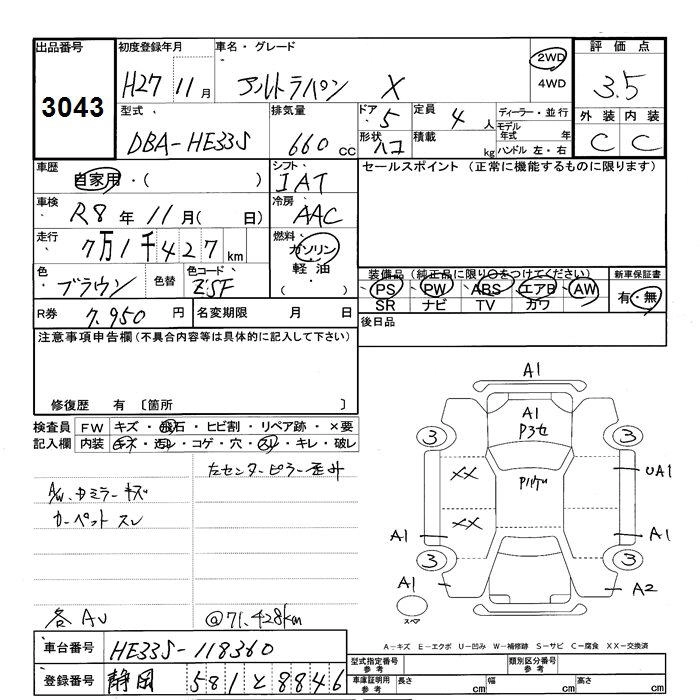 出品番号 初度登録年月 車名・グレード 評価点
3043 H27 11月 アルトラパン X 2WD 4WD 3.5
型式 DBA-HE33S 排気量 660 cc ドア 5 定員 4人 ディーラー・並行 外装 内装
形状 ハコ 積載 kg モデル年式 年 ハンドル 左・右 C C
車歴 自家用・( ) シフト IAT セールスポイント (正常に機能するものに限ります)
車検 R8年 11月( 日) 冷房 AAC
走行 7万1千427km 燃料 ガソリン 軽油 ( ・ )
色 ブラウン 色替 色コード ZSF
装備品 (純正品に限り○をつけてください) 新車保証書
PS PW ABS エアB AW 有・無
SR ナビ TV カワ
R券 7,950円 名変期限 月 日 後日品
注意事項申告欄(不具合内容等は具体的に記入して下さい)
修復歴 有 〔箇所 〕
検査員 FW キズ・飛石・ヒビ割・リペア跡・×要
記入欄 内装 キズ・汚レ・コゲ・穴・スレ・キレ・破レ
左センターピラー歪み
A/W.カミラーキズ
カーペットスレ
各AU @71.428km
A1
A1
3 3
XX UA1
XX
A1 A1
3 3
A1 A2
スペア
A-キズ E-エクボ U-凹み W-補修跡 S-サビ C-腐食 XX-交換済
車台番号 HE33S-118360
登録番号 静岡 581 と 8846
型式指定番号 参考 類別区分番号 参考
車庫証明用 参考 長さ cm 幅 cm 高さ cm